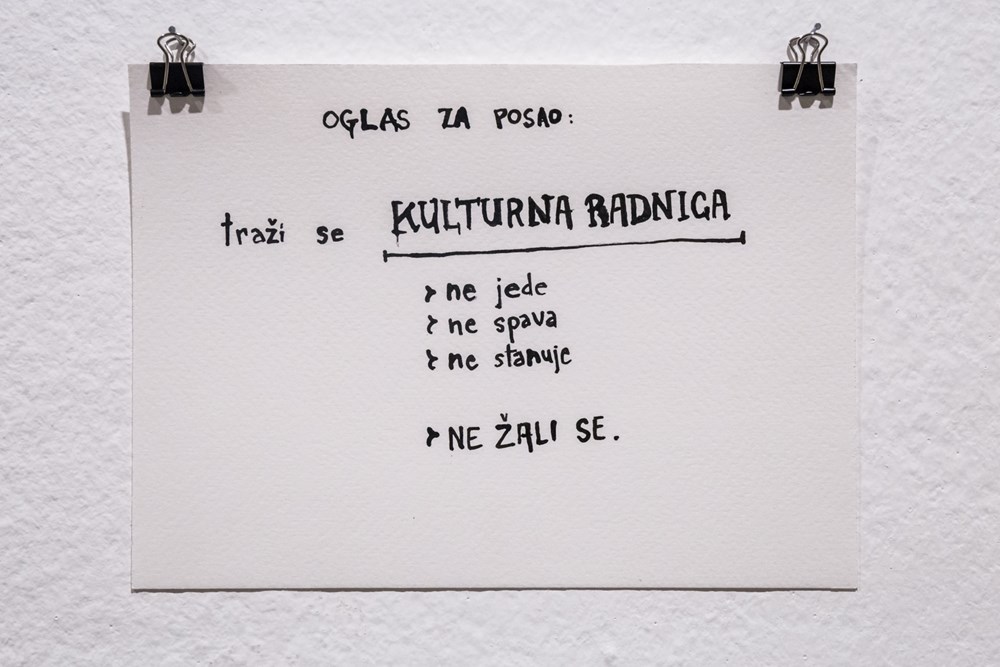 OGLAS ZA POSAO:
traži se KULTURNA RADNICA
> ne jede
> ne spava
> ne stanuje
> NE ŽALI SE.